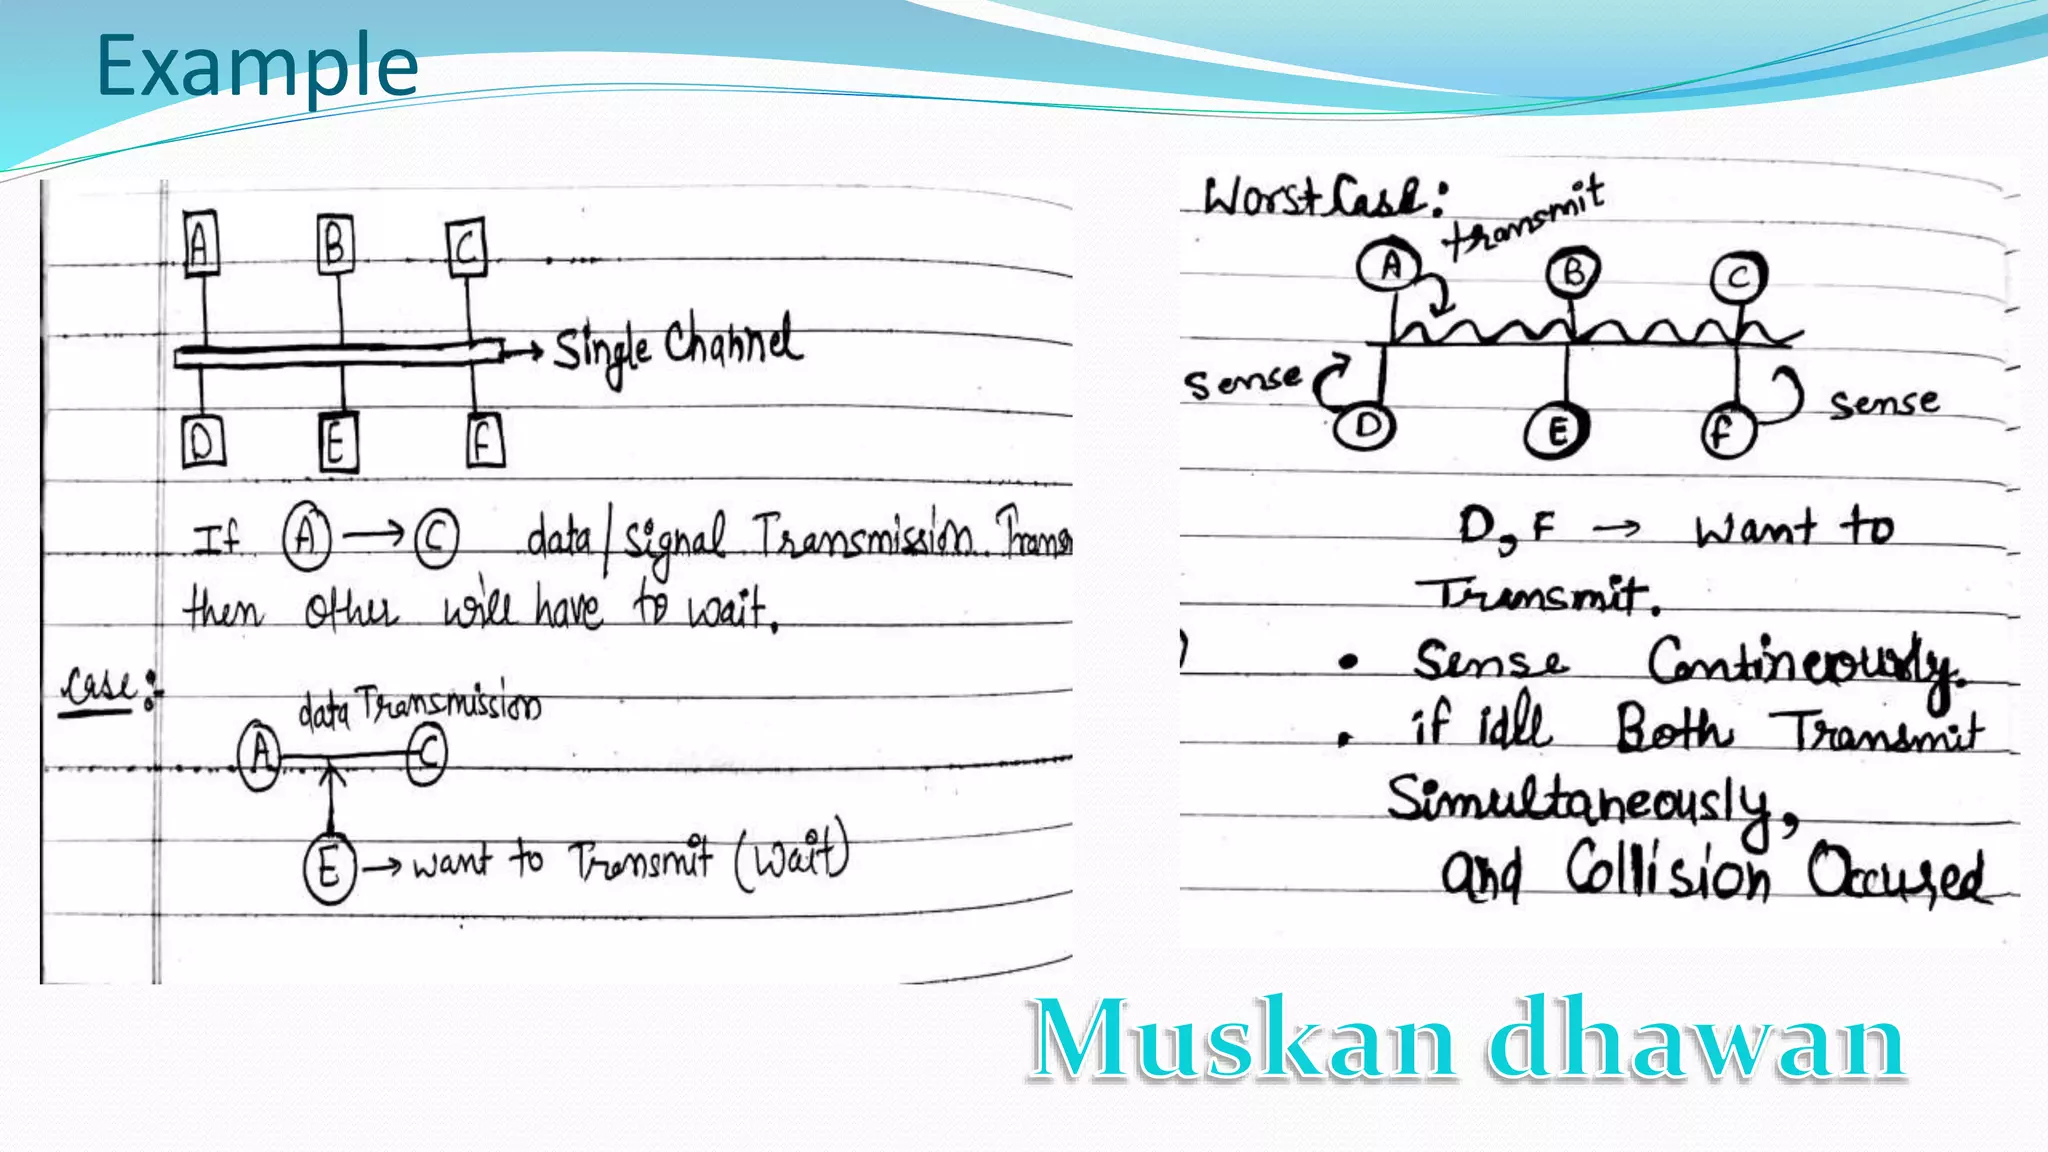 Example
A B C
→ Single Channel
D E F
If A → C data/signal Transmission.
then other will have to wait.
Case:
data Transmission
A C
E → want to Transmit (wait)
Worst Case:
transmit
A B C
Sense
Sense
D E F
D, F → Want to
Transmit.
• Sense
• if idle Both Transmit
Simultaneously,
and Collision Occured
Muskan dhawan